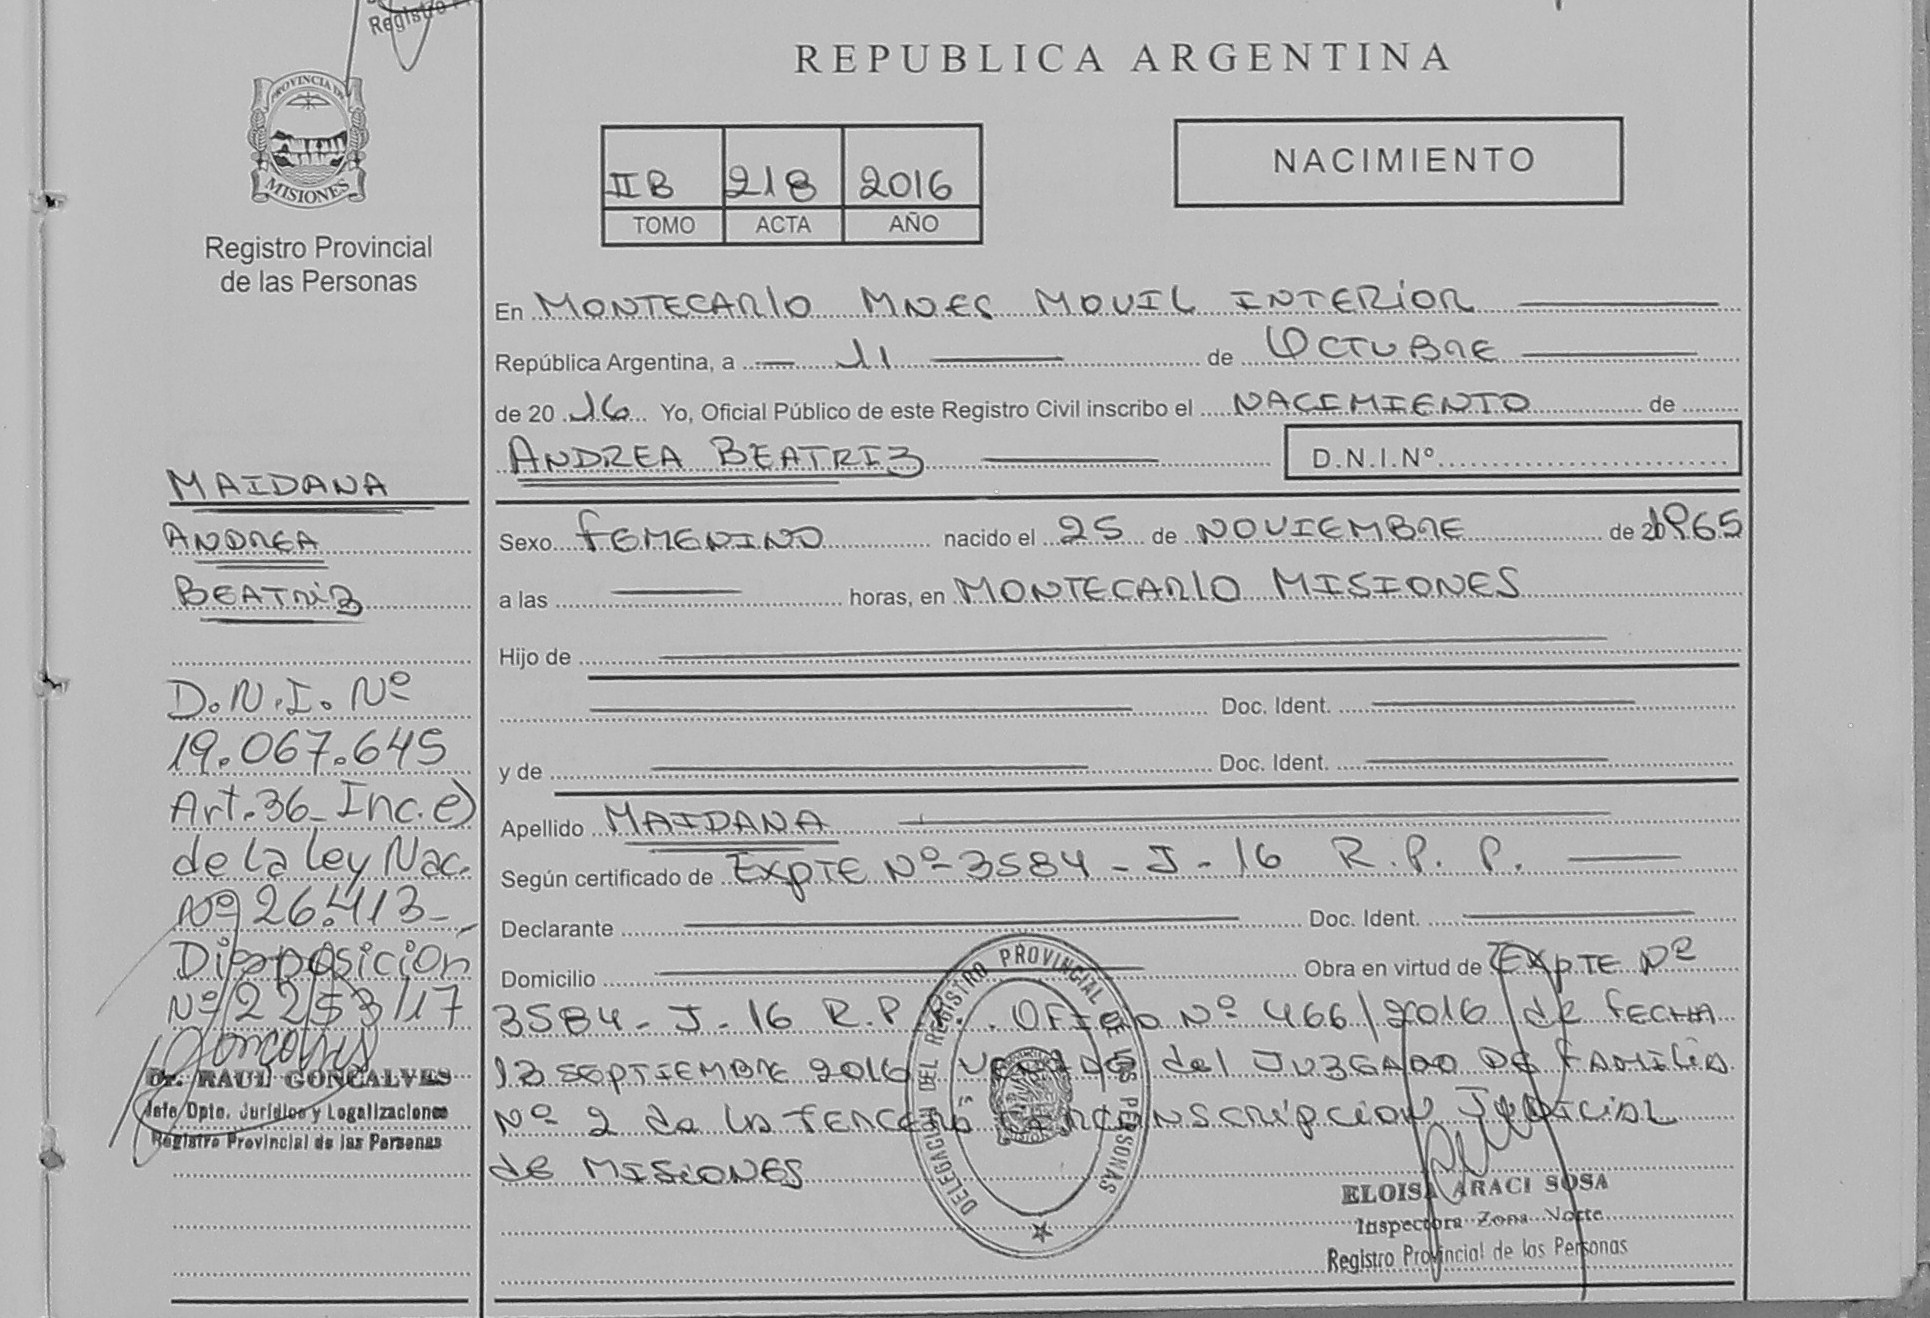 Registro
PROVINCIA DE
MISIONES
Registro Provincial
de las Personas
MAIDANA
ANDREA
BEATRIZ
D.N.I. Nº
19.067.645
Art.36_Inc.e)
de la ley Nac.
Nº 26.413_
Disposición
Nº 2253/17
Dr. RAUL GONCALVES
Jefe Dpto. Jurídico y Legalizaciones
Registro Provincial de las Personas
REPUBLICA ARGENTINA
IIB 218 2016
TOMO ACTA AÑO
NACIMIENTO
En MONTECARLO MNES MOVIL INTERIOR
República Argentina, a 11 de OCTUBRE
de 20 16 Yo, Oficial Público de este Registro Civil inscribo el NACIMIENTO de
ANDREA BEATRIZ D.N.I.Nº
Sexo FEMENINO nacido el 25 de NOVIEMBRE de 1965
a las horas, en MONTECARLO MISIONES
Hijo de
Doc. Ident.
y de Doc. Ident.
Apellido MAIDANA
Según certificado de EXPTE Nº 3584 - J - 16 R.P.P.
Declarante Doc. Ident.
Domicilio Obra en virtud de EXPTE Nº
3584 - J - 16 R.P.P. Oficio Nº 466/2016 de FECHA
13 SEPTIEMBRE 2016 del JUZGADO DE FAMILIA
Nº 2 de la TERCERA CIRCUNSCRIPCION JUDICIAL
de MISIONES
DELEGACION DEL REGISTRO PROVINCIAL DE LAS PERSONAS
ELOISA ARACI SOSA
Inspectora Zona Norte
Registro Provincial de las Personas